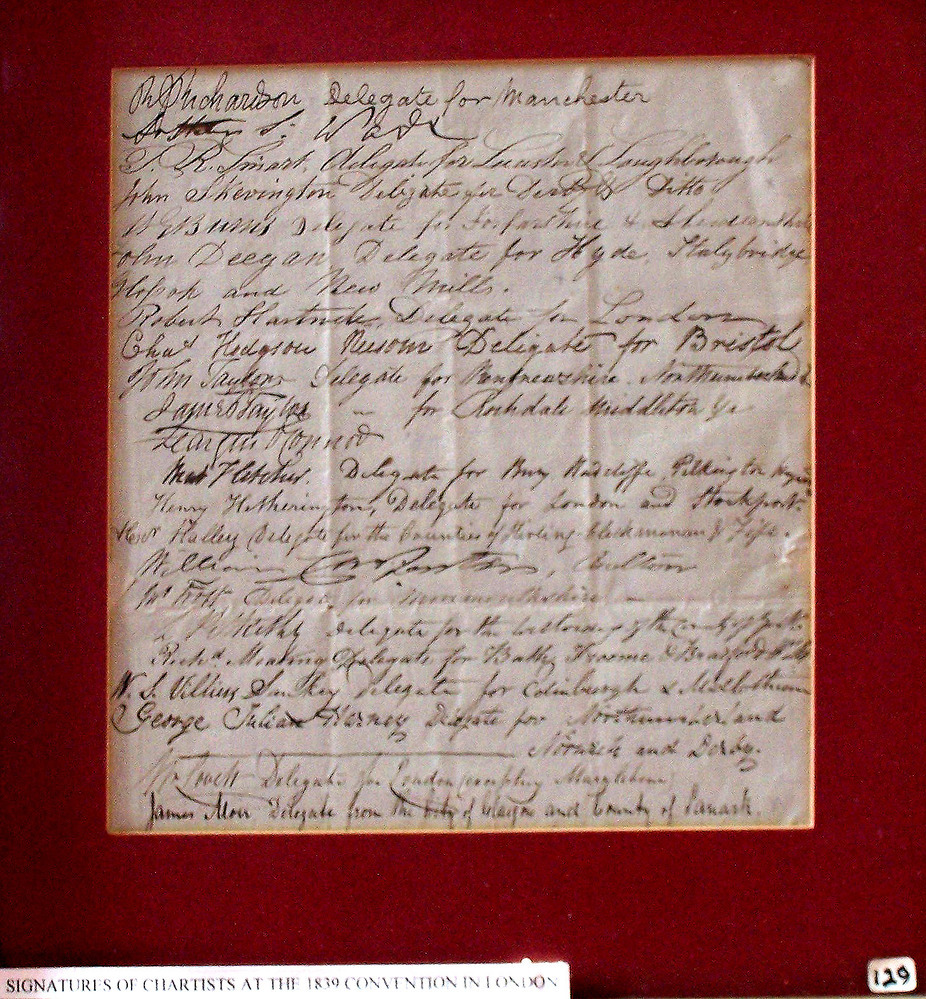 R J Richardson Delegate for Manchester
Arthur S. Wade
T. R. Smart, delegate for Leicester & Loughborough
John Skevington Delegate for Derby & Ditto
W G Burns Delegate for Forfarshire &
John Deegan Delegate for Hyde, Stalybridge
Glossop and New Mills.
Robert Hartwell, Delegate for London
Chas Hodgson Neesom Delegate for Bristol
John Taylor Delegate for Renfrewshire Northumberland &
James Taylor " for Rochdale Middleton &c
Feargus O'Connor
Matt Fletcher. Delegate for Bury Radcliffe Pilkington
Henry Hetherington, Delegate for London and Stockport.
Alexr Halley Delegate for the Counties of Stirling Clackmannan & Fife.
William Carpenter, Bolton
Delegate for Monmouthshire
L Pitkethly Delegate for the of the County of York.
Richd Mealing Delegate for Bath, Froome & Bradford Wilts
W. S. Villiers Sankey Delegate for Edinburgh & Midlothian
George Julian Harney Delegate for Northumberland
Norwich and Derby.
Wm Lovett Delegate for London excepting Marylebone
James Moir Delegate from the City of Glasgow and County of Lanark.
SIGNATURES OF CHARTISTS AT THE 1839 CONVENTION IN LONDON
129